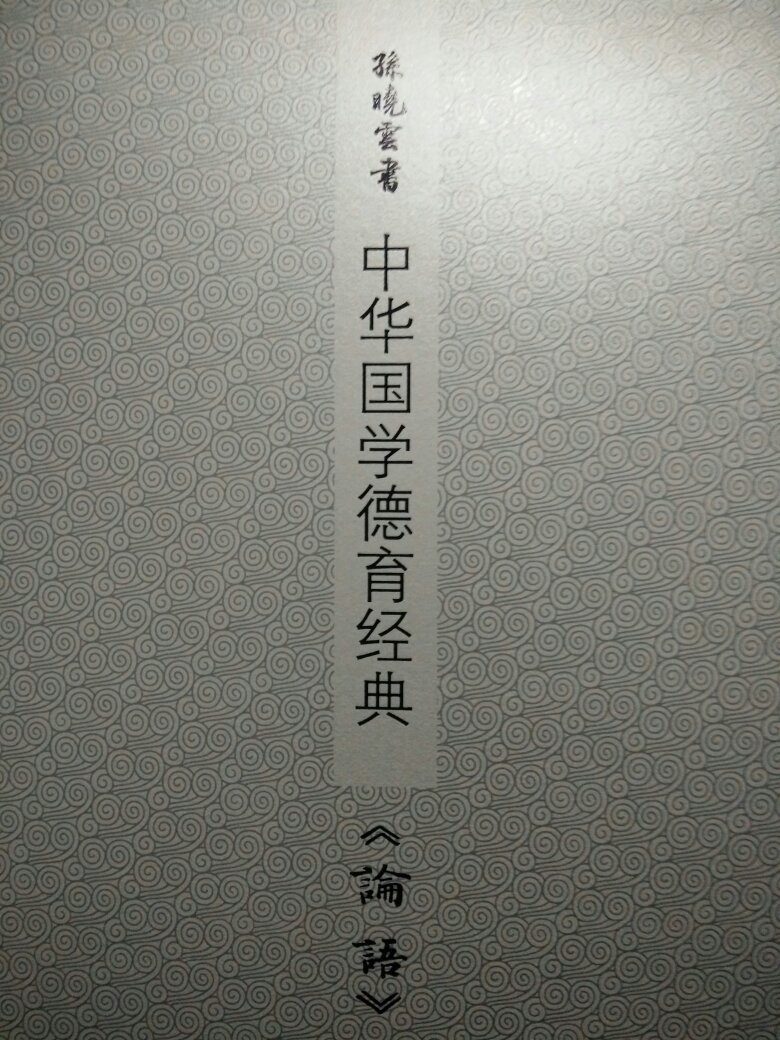 孫曉雲書
中华国学德育经典
《論語》